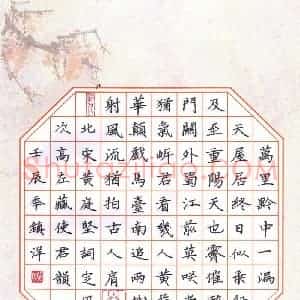 萬里黔中一漏
天屋居終日似乘
及至重陽天也霽催
門關外蜀江前莫笑
猶氣岸君看幾人黃
華顛戲馬臺南追兩
射風流猶拍古人肩
北宋黃庭堅詞定
次高左藏使君韻
壬辰奉鎮洋